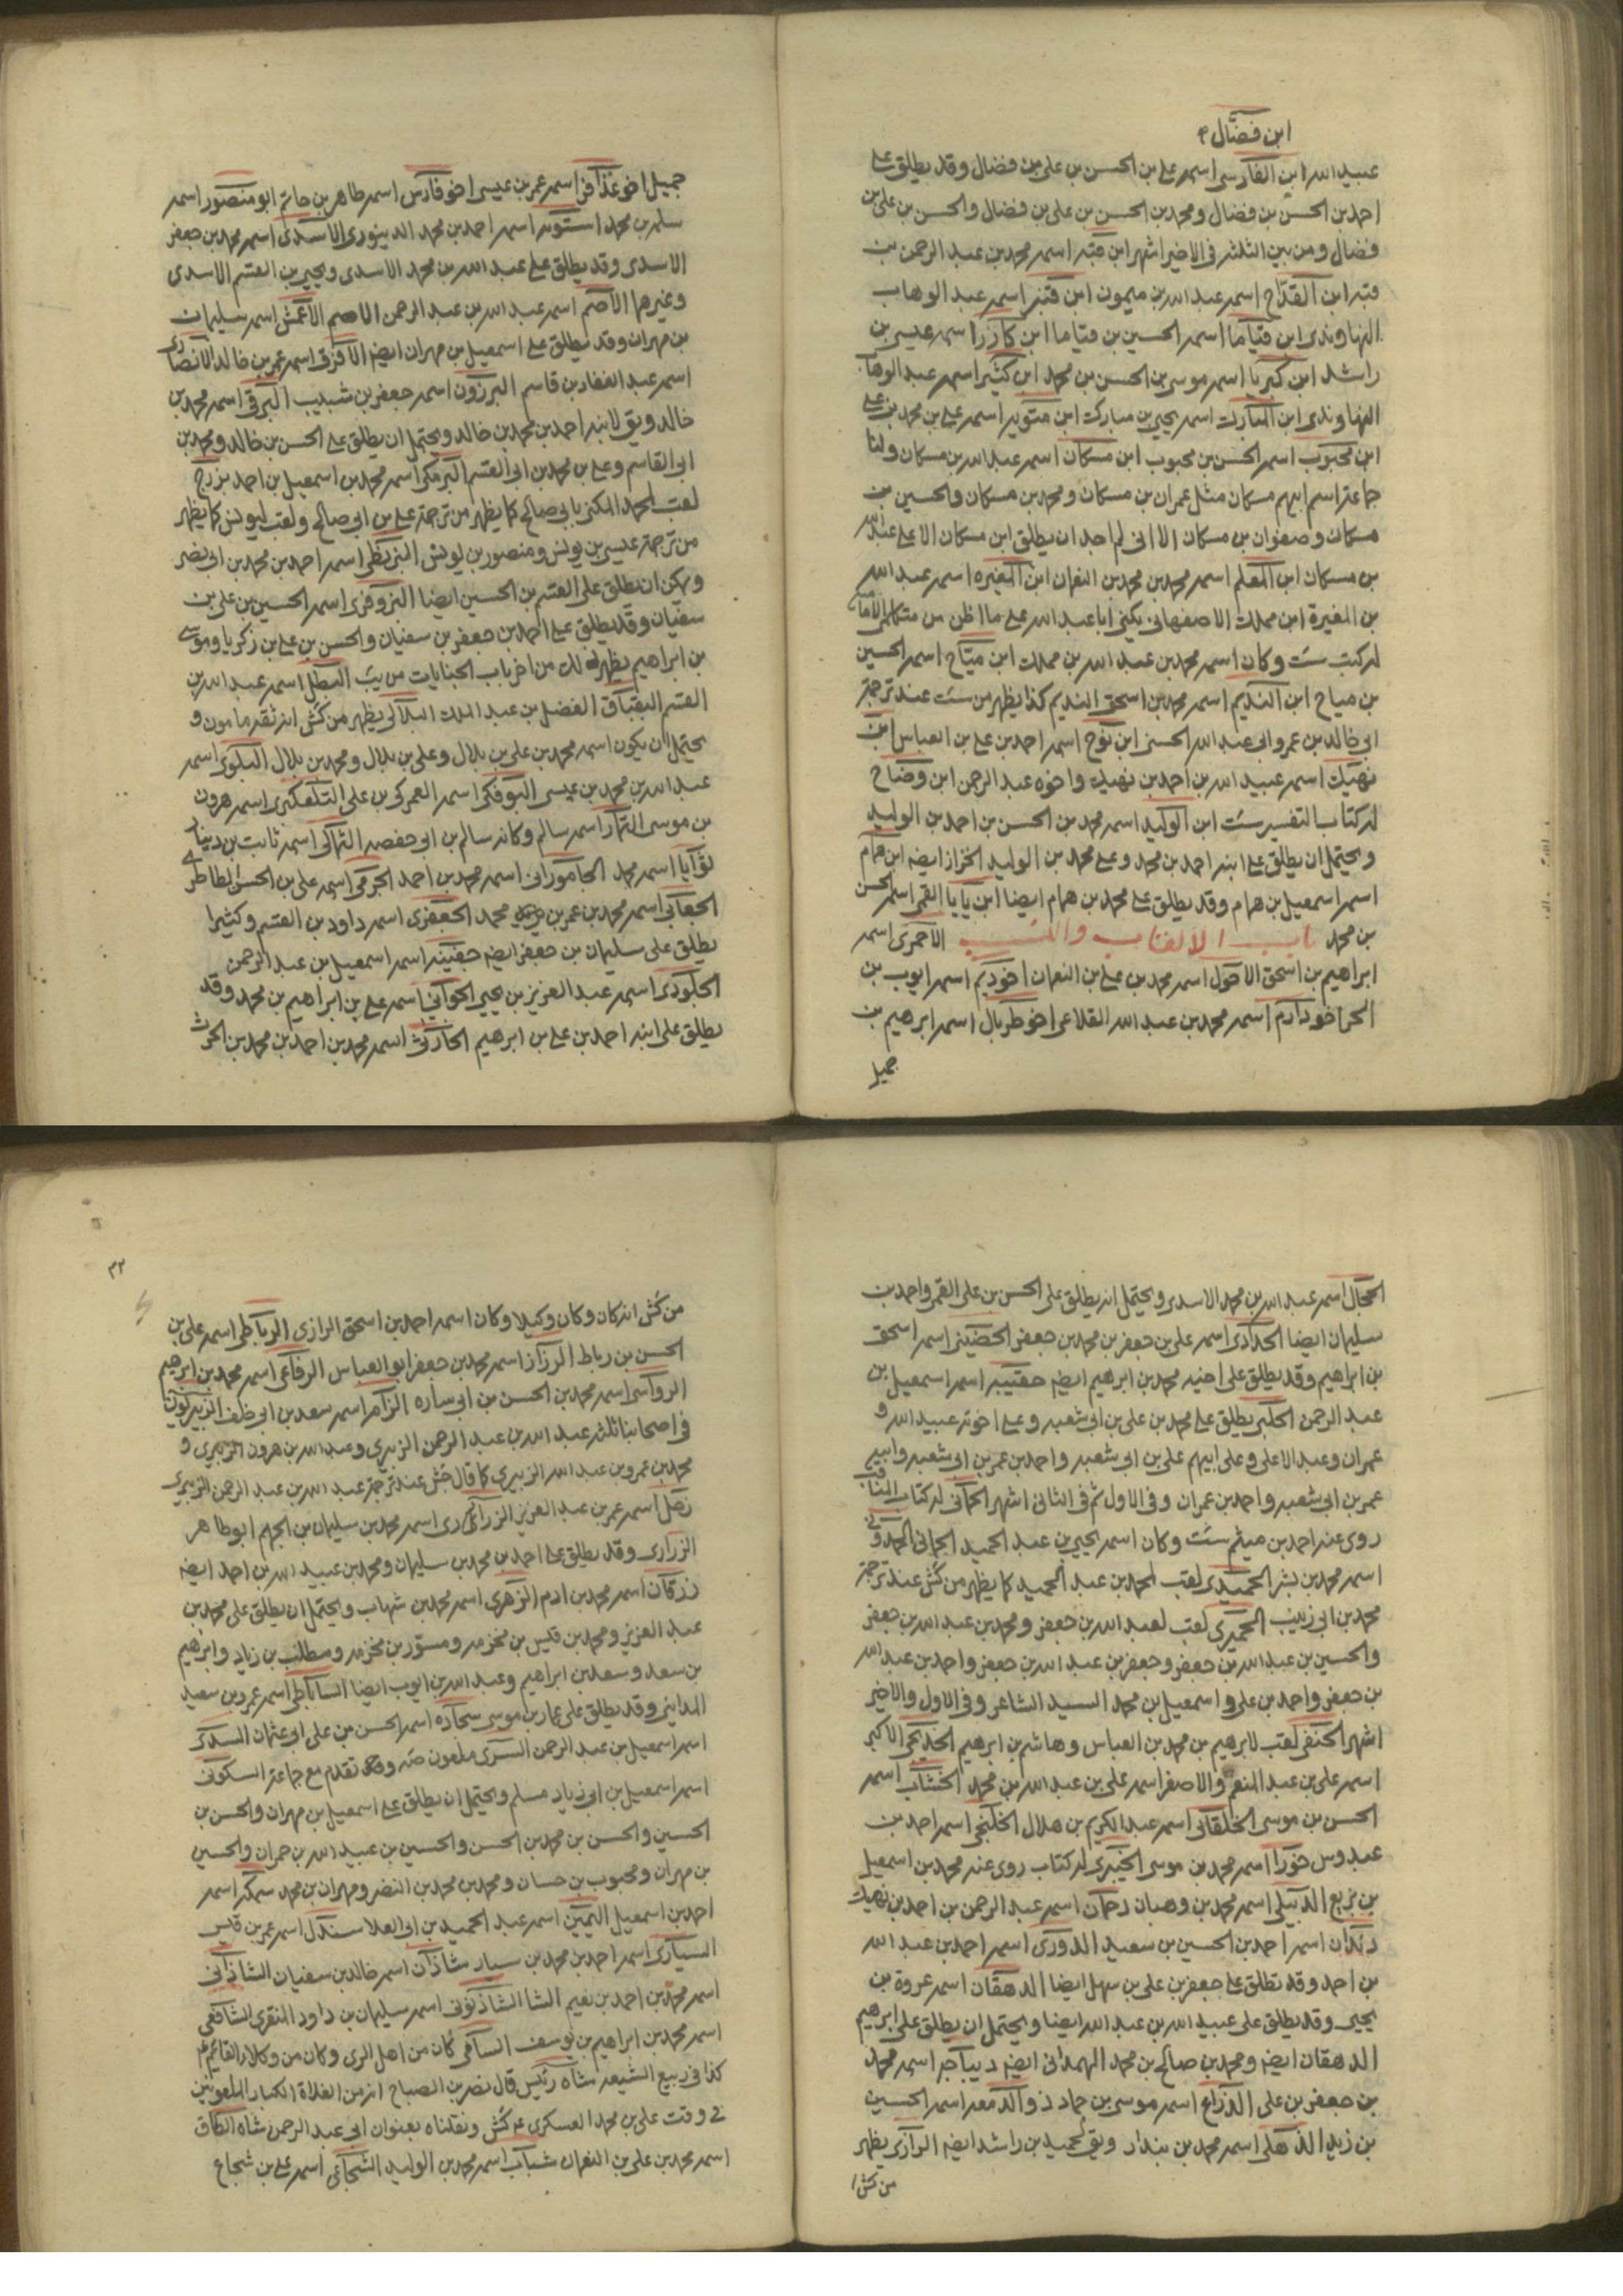 ابن فضّال
عبيد الله ابن الفارسى اسمه على بن الحسن بن على بن فضال وقد يطلق على
احمد بن الحسن بن فضال ومحمد بن الحسن بن على بن فضال والحسن بن على بن
فضال ومن بين الثلثه فى الاخير اشهر ابن قبه اسمه محمد بن عبد الرحمن بن
قبه ابن القدّاح اسمه عبد الله بن ميمون ابن قنبر اسمه عبد الوهاب
النهاوندى ابن قياما اسمه الحسين بن قياما ابن كازر اسمه عيسى بن
راشد ابن كبريا اسمه موسى بن الحسن بن محمد ابن كثير اسمه عبد الوها
النهاوندى ابن المبارك اسمه يحيى بن مبارك ابن متويه اسمه على بن محمد بن على
ابن محبوب اسمه الحسن بن محبوب ابن مسكان اسمه عبد الله بن مسكان ولنا
جماعة اسم ابيهم مسكان مثل عمران بن مسكان ومحمد بن مسكان والحسين بن
مسكان وصفوان بن مسكان الا انى لم اجد ان يطلق ابن مسكان الا على عبد الله
بن مسكان ابن المعلم اسمه محمد بن محمد بن النعمان ابن المغيره اسمه عبد الله
بن المغيرة ابن مملك الاصفهانى يكنى ابا عبد الله على ما اظن من متكلمى الاماميه
له كتب ست وكان اسمه محمد بن عبد الله بن مملك ابن ميّاح اسمه الحسين
بن مياح ابن النديم اسمه محمد بن اسحق النديم كذا يظهر من ست عند ترجمة
ابى خالد بن عمرو ابى عبد الله الحسنى ابن نوح اسمه احمد بن على بن العباس ابن
نهيك اسمه عبيد الله بن احمد بن نهيك واخوه عبد الرحمن ابن وضاح
له كتاب التفسير ست ابن الوليد اسمه محمد بن الحسن بن احمد بن الوليد
ويحتمل ان يطلق على ابنه احمد بن محمد وعلى محمد بن الوليد الخزاز ايضه ابن همام
اسمه اسمعيل بن همام وقد يطلق على محمد بن همام ايضا ابن يايا القمى اسمه الحسن
بن محمد باب الالقاب والنسب الاحمرى اسمه
ابراهيم بن اسحق الاحول اسمه محمد بن على بن النعمان اخو ديم اسمه ايوب بن
الحر اخو دارم اسمه محمد بن عبد الله القلاعى اخو طربال اسمه ابرهيم بن
جميل
جميل اخو عذافر اسمه عمر بن عيسى اخو فارس اسمه طاهر بن حاتم ابو منصور اسمه
سلم بن محمد استونه اسمه احمد بن محمد الدينورى الاسدى اسمه محمد بن جعفر
الاسدى وقد يطلق على عبد الله بن محمد الاسدى ويحيى بن القسم الاسدى
وغيرهما الاصم اسمه عبد الله بن عبد الرحمن الاصم الاعمش اسمه سليمان
بن مهران وقد يطلق على اسمعيل بن مهران ايضه الافرق اسمه عمر بن خالد الانصارى
اسمه عبد الغفار بن قاسم البرزون اسمه جعفر بن شبيب البرقى اسمه محمد بن
خالد ويق لابنه احمد بن محمد بن خالد ويحتمل ان يطلق على الحسن بن خالد ومحمد بن
ابى القاسم وعلى بن محمد بن ابى القسم البرمكى اسمه محمد بن اسمعيل بن احمد بزرج
لقب لمحمد المكنى بابى صالح كما يظهر من ترجمة على بن ابى صالح ولقب ليونس كما يظهر
من ترجمة عيسى بن يونس ومنصور بن يونس البزنطى اسمه احمد بن محمد بن ابى نصر
ويمكن ان يطلق على القسم بن الحسين ايضا البزوفرى اسمه الحسين بن على بن
سفيان وقد يطلق على احمد بن جعفر بن سفيان والحسن بن على بن زكريا وموسى
بن ابراهيم يظهر ذلك من اخر باب الجنايات من يب البطل اسمه عبد الله بن
القسم البقباق الفضل بن عبد الملك البلالى يظهر من كش انه ثقه مامون و
يحتمل ان يكون اسمه محمد بن على بن بلال وعلى بن بلال ومحمد بن بلال البلوى اسمه
عبد الله بن محمد بن عيسى البوفكى اسمه العمركى بن على التلعكبرى اسمه هرون
بن موسى التمار اسمه سالم وكانه سالم بن ابى حفصه الثمالى اسمه ثابت بن دينار
توايا اسمه محمد الجامورانى اسمه محمد بن احمد الجرمى اسمه على بن الحسن الطاطرى
الجعابى اسمه محمد بن عمر بن محمد الجعفرى اسمه داود بن القسم وكثيرا
يطلق على سليمان بن جعفر ايضه جفينه اسمه اسمعيل بن عبد الرحمن
الجلودى اسمه عبد العزيز بن يحيى الجوانى اسمه على بن ابراهيم بن محمد وقد
يطلق على ابنه احمد بن على بن ابرهيم الحارثى اسمه محمد بن احمد بن محمد بن الحرث
الحجّال اسمه عبد الله بن محمد الاسدى ويحتمل انه يطلق على الحسن بن على القمى واحمد بن
سليمان ايضا الحدادى اسمه على بن جعفر بن محمد بن جعفر الحضينى اسمه اسحق
بن ابراهيم وقد يطلق على اخيه محمد بن ابرهيم ايضه حقيبه اسمه اسمعيل بن
عبد الرحمن الحلبى يطلق على محمد بن على بن ابى شعبه وعلى اخوته عبيد الله و
عمران وعبد الاعلى وعلى ابيهم على بن ابى شعبه واحمد بن عمر بن ابى شعبه وابيه
عمر بن ابى شعبه واحمد بن عمران وفى الاول ثم فى الثانى اشهر الحمانى له كتاب المناقب
روى عنه احمد بن ميثم ست وكان اسمه يحيى بن عبد الحميد الحمانى الحمدونى
اسمه محمد بن بشر الحميدى لقب لمحمد بن عبد الحميد كما يظهر من كش عند ترجمة
محمد بن ابى زينب الحميرى لقب لعبد الله بن جعفر ومحمد بن عبد الله بن جعفر
والحسين بن عبد الله بن جعفر وجعفر بن عبد الله بن جعفر واحمد بن عبد الله
بن جعفر واحمد بن على واسمعيل بن محمد السيد الشاعر وفى الاول والاخير
اشهر الحنفى لقب لابرهيم بن محمد بن العباس وهاشم بن ابرهيم الخديجى الاكبر
اسمه على بن عبد المنعم والاصغر اسمه على بن عبد الله بن محمد الخشاب اسمه
الحسن بن موسى الخلقانى اسمه عبد الكريم بن هلال الخلنجى اسمه احمد بن
عبدوس خورا اسمه محمد بن موسى الخيبرى له كتاب روى عنه محمد بن اسمعيل
بن بزيع الدبيلى اسمه محمد بن وهبان دحمان اسمه عبد الرحمن بن احمد بن نهيك
دندان اسمه احمد بن الحسين بن سعيد الدورى اسمه احمد بن عبد الله
بن احمد وقد تطلق على جعفر بن على بن سهل ايضا الدهقان اسمه عروة بن
يحيى وقد يطلق على عبيد الله بن عبد الله ايضا ويحتمل ان يطلق على ابرهيم
الدهقان ايضه ومحمد بن صالح بن محمد الهمدانى ايضه ديباجه اسمه محمد
بن جعفر بن على الذراع اسمه موسى بن حماد ذو الدمعه اسمه الحسين
بن زيد الذهلى اسمه محمد بن بندار ويق لحميد بن راشد ايضه الرازى يظهر
من كش
٣٢
من كش انه كان وكان وكيلا وكان اسمه احمد بن اسحق الرازى الرباطى اسمه على بن
الحسن بن رباط الرزاز اسمه محمد بن جعفر ابو العباس الرفاعى اسمه محمد بن ابرهيم
الرواسى اسمه محمد بن الحسن بن ابى ساره الزام اسمه سعد بن ابى خلف الزبيريون
فى اصحابنا ثلثه عبد الله بن عبد الرحمن الزبيرى وعبد الله بن هرون الزبيرى و
محمد بن عمرو بن عبد الله الزبيرى كما قال جش عند ترجمة عبد الله بن عبد الرحمن الزبيرى
زحل اسمه عمر بن عبد العزيز الزرارى اسمه محمد بن سليمان بن الجهم ابو طاهر
الزرارى وقد يطلق على احمد بن محمد بن سليمان ومحمد بن عبيد الله بن احمد ايضه
زرقان اسمه محمد بن ادم الزهرى اسمه محمد بن شهاب ويحتمل ان يطلق على محمد بن
عبد العزيز ومحمد بن قيس بن مخرمه ومسوّر بن مخرمه ومطلب بن زياد وابرهيم
بن سعد وسعد بن ابراهيم وعبد الله بن ايوب ايضا الساباطى اسمه عمرو بن سعيد
المداينى وقد يطلق على عمار بن موسى سجاده اسمه الحسن بن على ابى عثمان السدى
اسمه اسمعيل بن عبد الرحمن السرى ملعون صه وقد تقدم مع جماعة السكونى
اسمه اسمعيل بن ابى زياد مسلم ويحتمل ان يطلق على اسمعيل بن مهران والحسن بن
الحسين والحسن بن محمد بن الحسن والحسين بن عبيد الله بن حمران والحسين
بن مهران ومحبوب بن حسان ومحمد بن محمد بن النضر ومهران بن محمد سمكه اسمه
احمد بن اسمعيل السمين اسمه عبد الحميد بن ابى العلا سندل اسمه عمر بن قيس
السيارى اسمه احمد بن محمد بن سيار شاذان اسمه خالد بن سفيان الشاذانى
اسمه محمد بن احمد بن نعيم الشا الشاذكونى اسمه سليمان بن داود المنقرى الشافعى
اسمه محمد بن ابراهيم بن يوسف السامى كان من اهل الرى وكان من وكلاء القائم
كذا فى ربيع الشيعه شاه رئيس قال نصر بن الصباح انه من الغلاة الكبار الملعونين
فى وقت على بن محمد العسكرى كش ونقلناه بعنوان ابى عبد الرحمن شاه الطاق
اسمه محمد بن على بن النعمان شباب اسمه محمد بن الوليد الشجاعى اسمه على بن شجاع